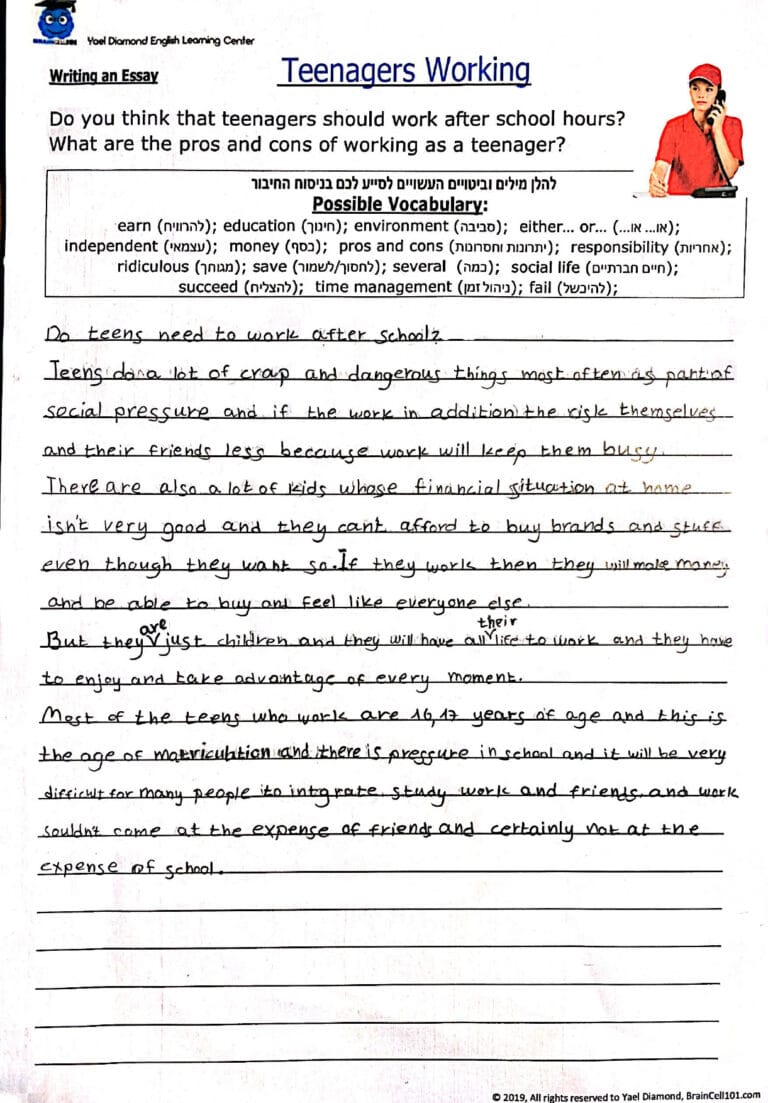 BRAINCELL101 Yael Diamond English Learning Center
Writing an Essay
Teenagers Working
Do you think that teenagers should work after school hours?
What are the pros and cons of working as a teenager?
להלן מילים וביטויים העשויים לסייע לכם בניסוח החיבור
Possible Vocabulary:
earn (להרוויח); education (חינוך); environment (סביבה); either... or... (או... או...);
independent (עצמאי); money (כסף); pros and cons (יתרונות וחסרונות); responsibility (אחריות);
ridiculous (מגוחך); save (לחסוך/לשמור); several (כמה); social life (חיים חברתיים);
succeed (להצליח); time management (ניהול זמן); fail (להיכשל);
Do teens need to work after school?
Teens do a lot of crap and dangerous things most often as part of
social pressure and if the work in addition the risk themselves
and their friends less because work will keep them busy.
There are also a lot of kids whose financial situation at home
isn't very good and they cant afford to buy brands and stuff
even though they want so. If they work then they will make money
and be able to buy and feel like everyone else.
But they are just children and they will have all their life to work and they have
to enjoy and take advantage of every moment.
Most of the teens who work are 16,17 years of age and this is
the age of matriculation and there is pressure in school and it will be very
difficult for many people to intgrate study work and friends, and work
souldn't come at the expense of friends and certainly not at the
expense of school.
© 2019, All rights reserved to Yael Diamond, BrainCell101.com